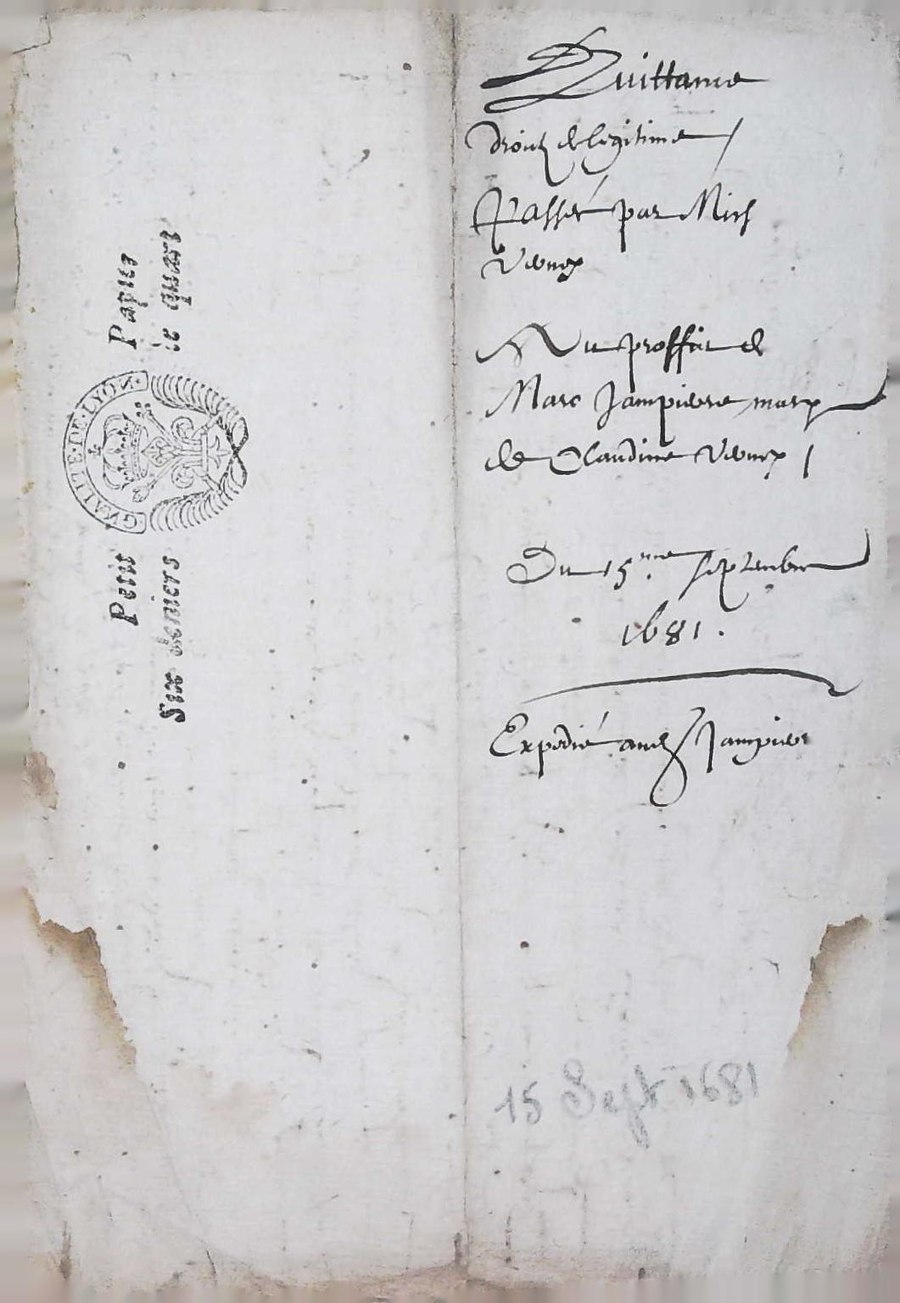 Petit Papier
Six deniers le quart
GNALITE·DE·LYON·
Quittance
droictz de legitime /
Passée par Mich
Au proffit de
Marc Jampierre mary
de Claudine
Du 15.me septembre
1681.
Expedié aud Jampierre
15 Sept 1681